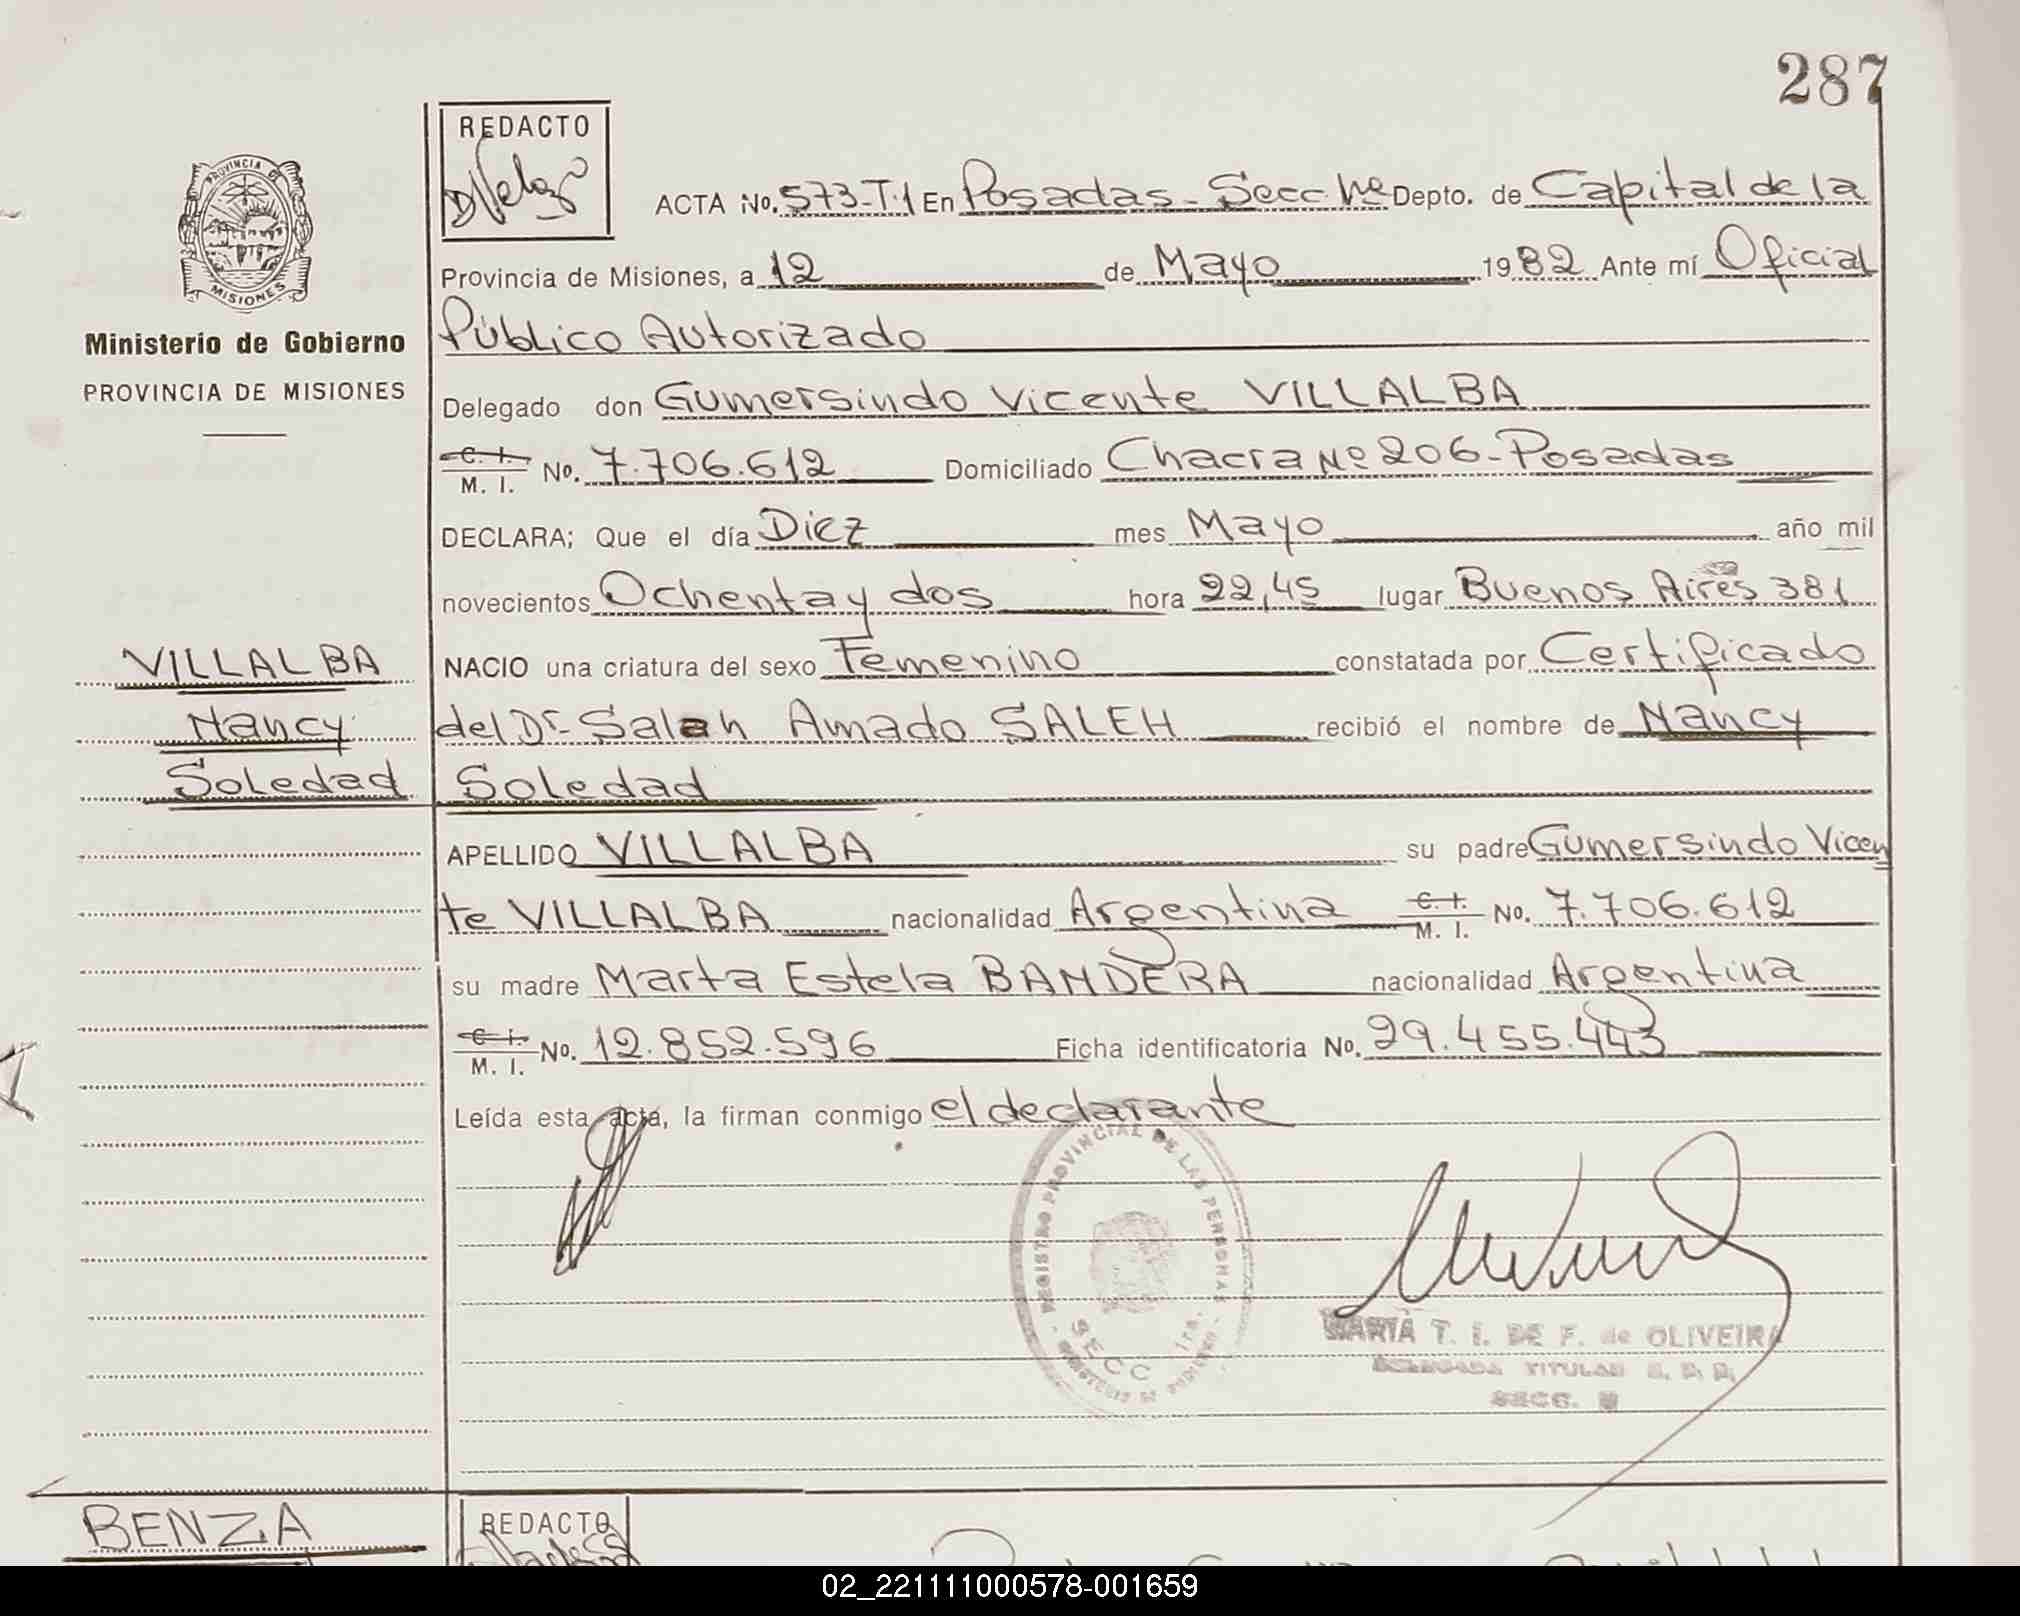 287
REDACTO
PROVINCIA DE
MISIONES
Ministerio de Gobierno
PROVINCIA DE MISIONES
ACTA No. 573-T.1 En Posadas - Secc 1ra Depto. de Capital de la
Provincia de Misiones, a 12 de Mayo 1982 Ante mí Oficial
Público Autorizado
Delegado don Gumersindo Vicente VILLALBA
C. I.
M. I. No. 7.706.612 Domiciliado Chacra Nº 206 - Posadas
DECLARA; Que el día Diez mes Mayo año mil
novecientos Ochenta y dos hora 22,45 lugar Buenos Aires 381
VILLALBA
Nancy
Soledad
NACIO una criatura del sexo Femenino constatada por Certificado
del Dr. Salah Amado SALEH recibió el nombre de Nancy
Soledad
APELLIDO VILLALBA su padre Gumersindo Vicen
te VILLALBA nacionalidad Argentina C. I. M. I. No. 7.706.612
su madre Marta Estela BANDERA nacionalidad Argentina
C. I.
M. I. No. 12.852.596 Ficha identificatoria No. 29.455.443
Leída esta acta, la firman conmigo el declarante
REGISTRO PROVINCIAL DE LAS PERSONAS
SECC 1ra.
MARIA T. I. DE F. de OLIVEIRA
DELEGADA TITULAR
SECC.
BENZA
REDACTO
02_221111000578-001659